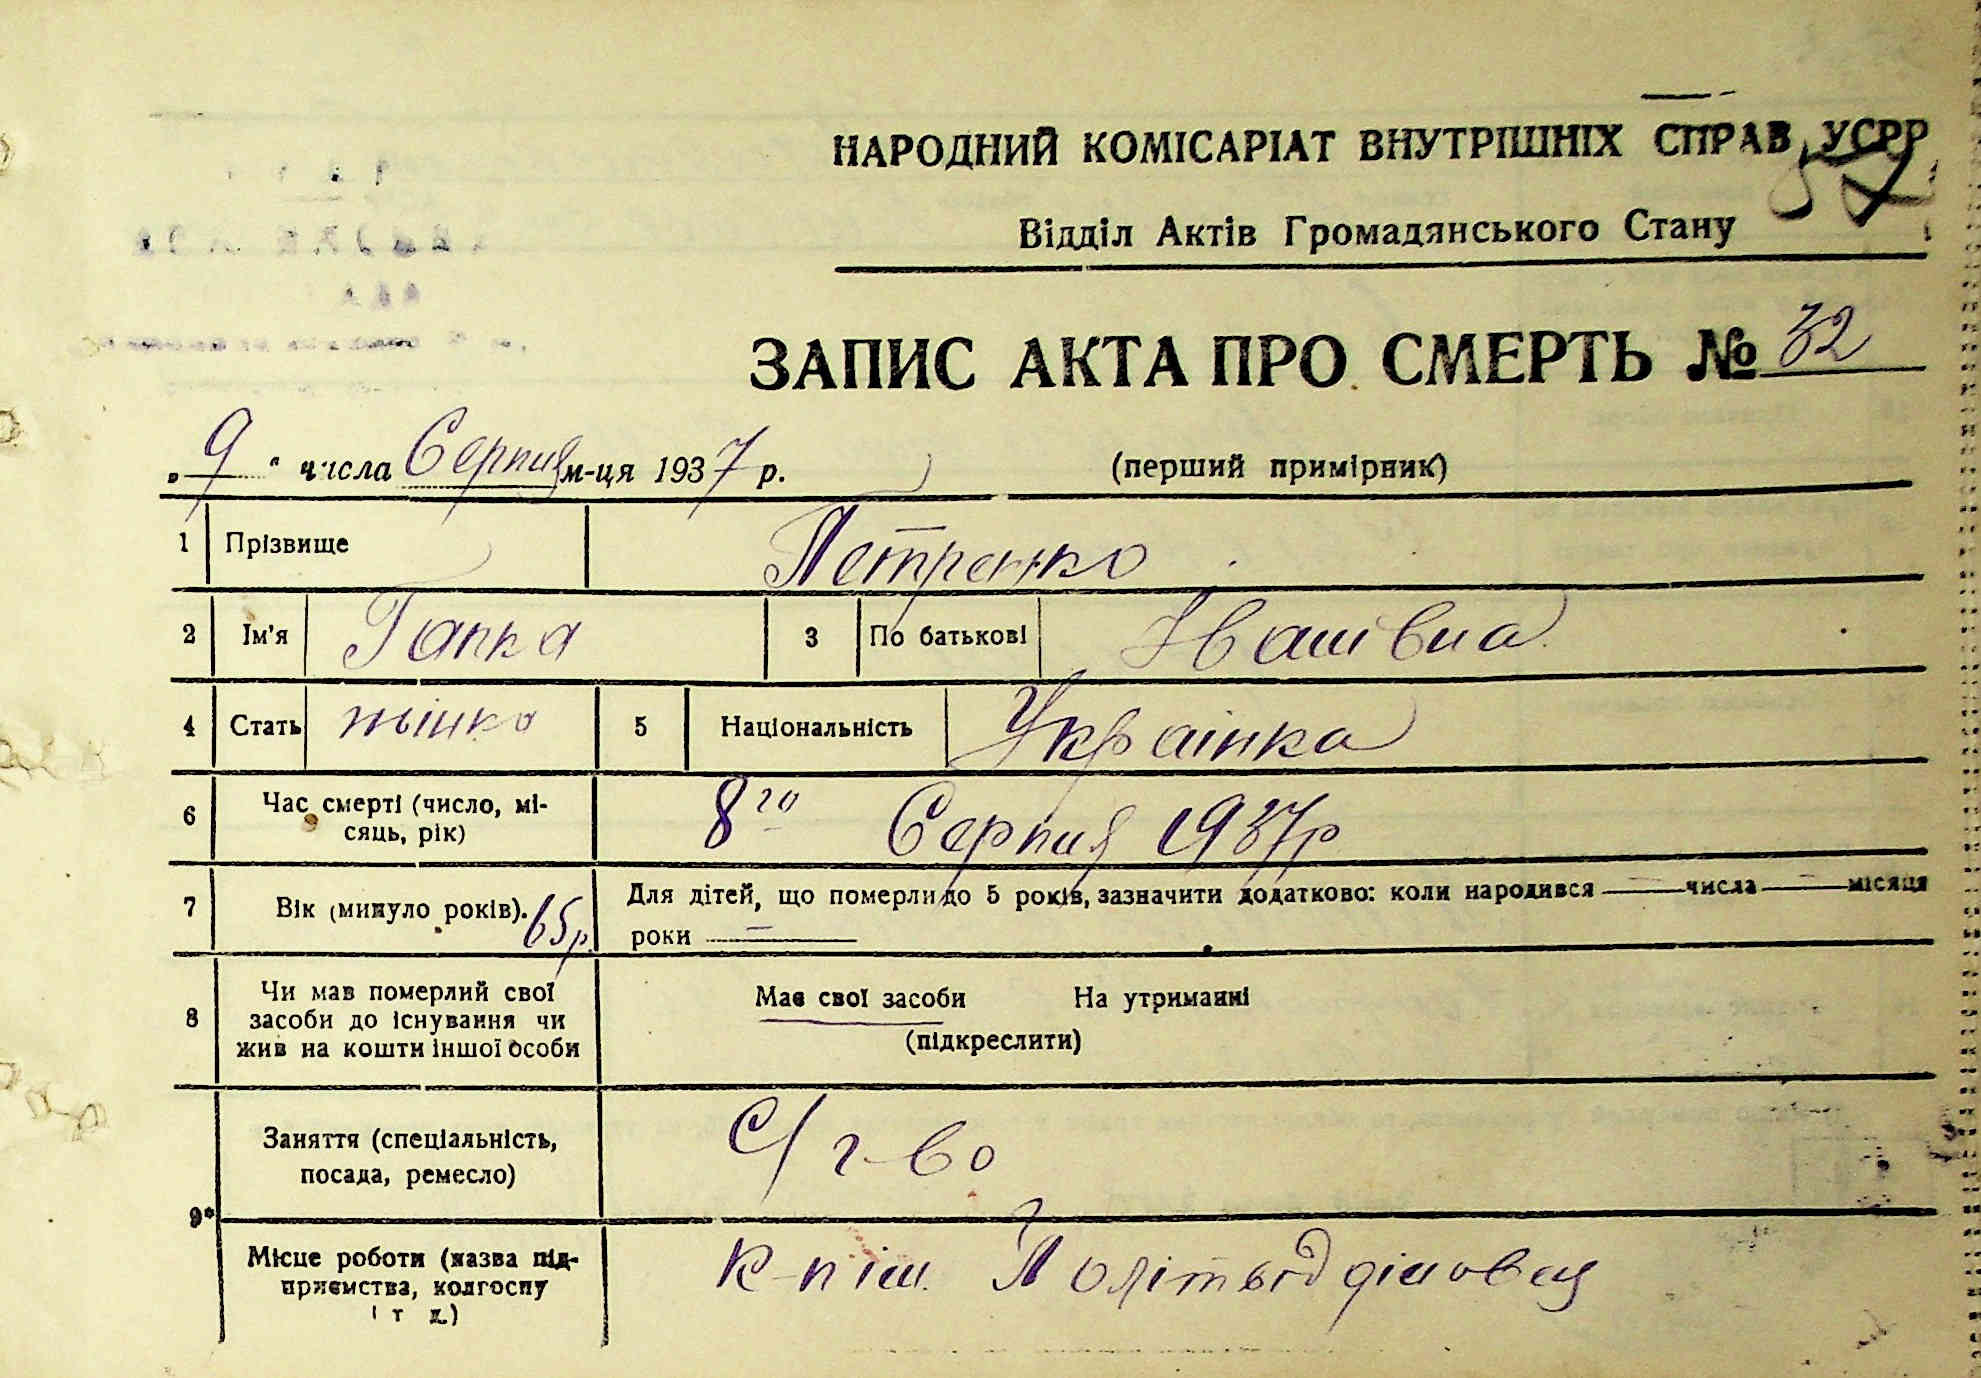 НАРОДНИЙ КОМІСАРІАТ ВНУТРІШНІХ СПРАВ УСРР
57
Відділ Актів Громадянського Стану
ЗАПИС АКТА ПРО СМЕРТЬ № 32
„9“ числа Серпня м-ця 1937 р. (перший примірник)
1 Прізвище Петренко
2 Ім'я Гапка 3 По батькові Іванівна
4 Стать жінка 5 Національність Українка
6 Час смерті (число, мі-
сяць, рік) 8го Серпня 1937р
7 Вік (минуло років). 65р. Для дітей, що померли до 5 років, зазначити додатково: коли народився — числа — місяця
роки —
8 Чи мав померлий свої
засоби до існування чи
жив на кошти іншої особи
Має свої засоби На утриманні
(підкреслити)
9* Заняття (спеціальність,
посада, ремесло) С/г-во
Місце роботи (назва під-
приємства, колгоспу
і т д.)
Політвідділовец